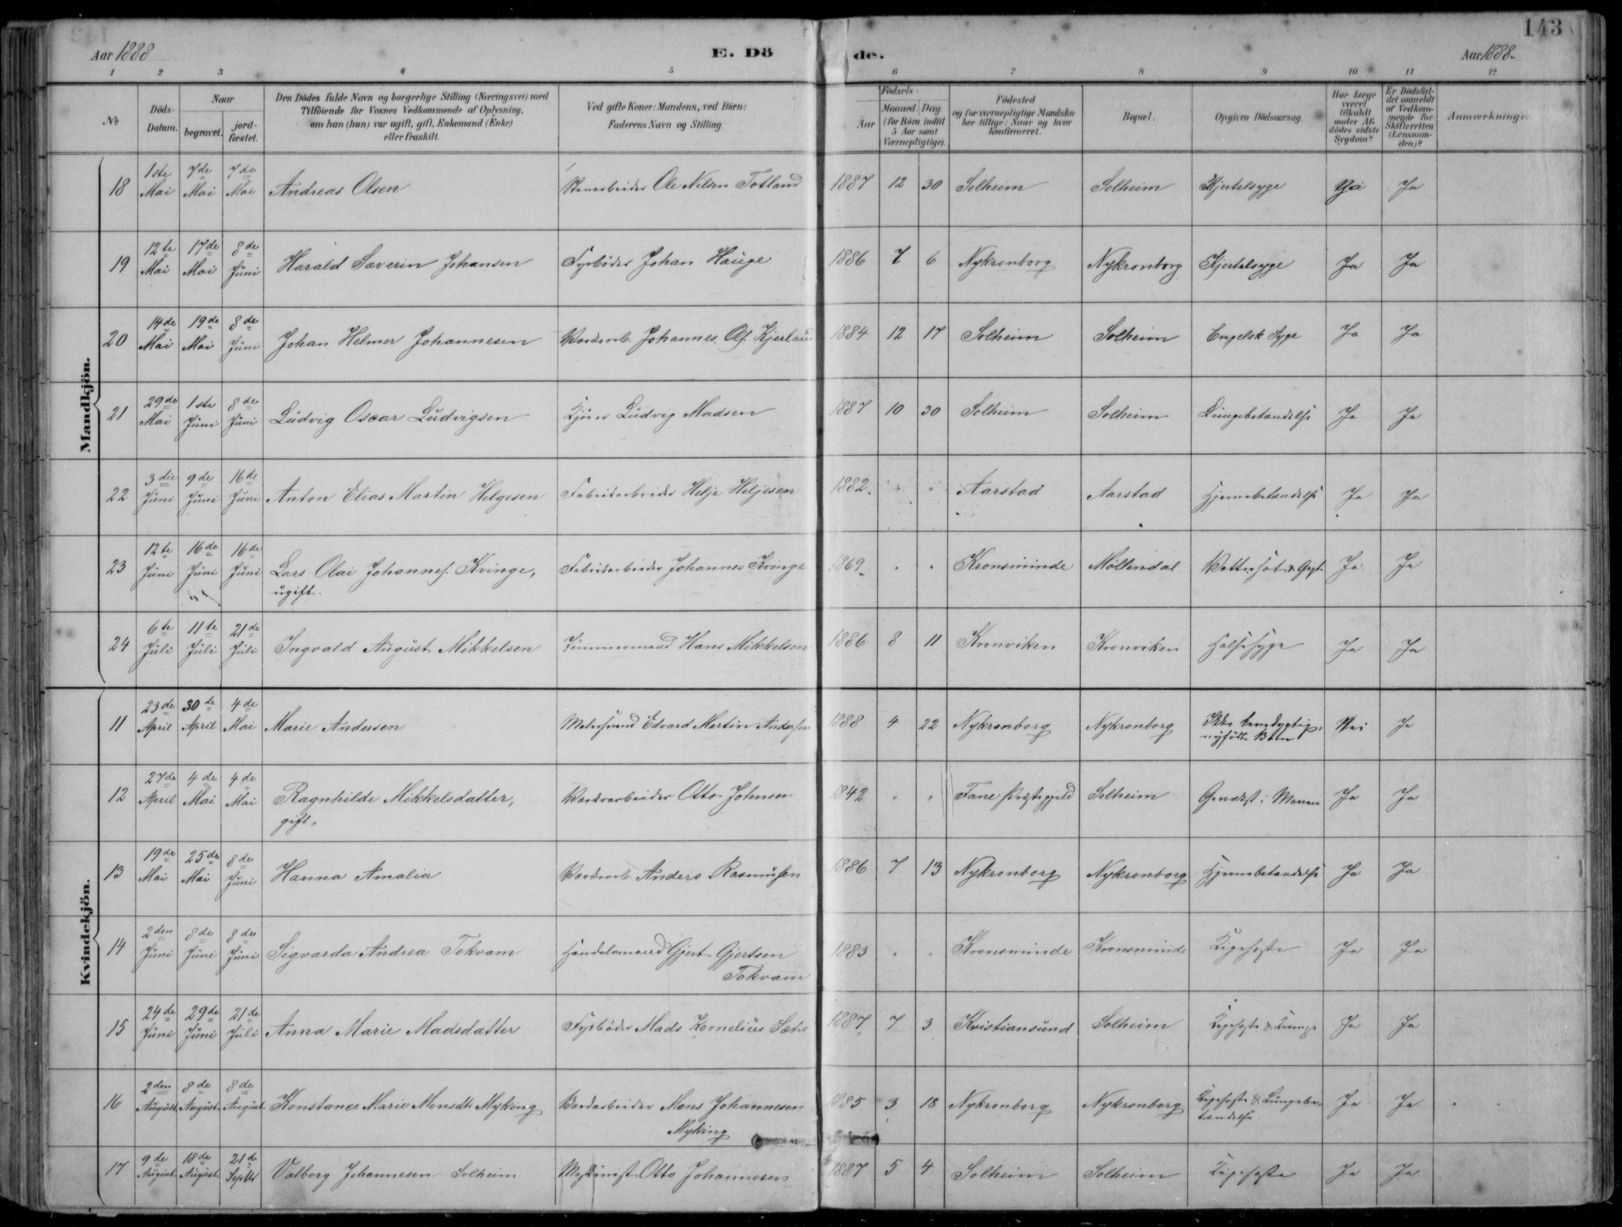 143
Aar 1888
E. Dö
de.
Aar 1888
1 2 3 4 5 6 7 8 9 10 11 12
№
Döds-Datum.
Naar
begravet.
jord-fæstet.
Den Dödes fulde Navn og borgerlige Stilling (Næringsvei) med
Tilföiende for Voxnes Vedkommende af Oplysning,
om han (hun) var ugift, gift, Enkemand (Enke)
eller fraskilt.
Ved gifte Koner: Mandens, ved Börn:
Faderens Navn og Stilling.
Födsels-
Aar
Maaned Dag
(for Börn indtil
5 Aar samt
Værnepligtige).
Födested
og for værnepligtige Mandskaber tillige: Naar og hvor konfirmeret.
Bopæl.
Opgiven Dödsaarsag.
Har Læge været tilkaldt under Afdödes sidste Sygdom?
Er Dödsfaldet anmeldt af Vedkommende for Skifteretten (Lensmanden)?
Anmærkninger
Mandkjön.
18 1ste Mai 7de Mai 7de Mai Andreas Olsen Stenarbeider Ole Nilsen Totland 1887 12 30 Solheim Solheim Kjertelsyge Ja Ja
19 12te Mai 17de Mai 8de Juni Harald Severin Johansen Fyrböder Johan Hauge 1886 7 6 Nykronborg Nykronborg Kjertelsyge Ja Ja
20 14de Mai 19de Mai 8de Juni Johan Helmer Johannesen Johannes 1884 12 17 Solheim Solheim Engelsk Syge Ja Ja
21 29de Mai 1ste Juni 8de Juni Ludvig Oscar Ludvigsen Ludvig Madsen 1887 10 30 Solheim Solheim Lungebetændelse Ja Ja
22 3die Juni 9de Juni 16de Juni Anton Elias Martin Helgesen Fabrikarbeider Helje Heljesen 1882. " " Aarstad Aarstad Hjernebetændelse Ja Ja
23 12te Juni 16de Juni 16de Juni Lars Olai Johannes. Kvinge,
ugift.
Fabrikarbeider Johannes Kvinge 1869 " " Kronsminde Möllendal Ja Ja
24 6te Juli 11te Juli 21de Juli Ingvald August Mikkelsen Tömmermand Hans Mikkelsen 1886 8 11 Kronviken Kronviken Halssyge Ja Ja
Kvindekjön.
11 23de April 30te April 4de Mai Marie Andersen Malersvend Edvard Martin Andersen 1888 4 22 Nykronborg Nykronborg
nyfödte Barn Nei Ja
12 27de April 4de Mai 4de Mai Ragnhilde Mikkelsdatter,
gift.
Verksarbeider Otto Johnsen 1842 " " Fane Præstegjeld Solheim i Maven Ja Ja
13 19de Mai 25de Mai 8de Juni Hanna Amalia Anders Rasmussen 1886 7 13 Nykronborg Nykronborg Hjernebetændelse Ja Ja
14 2den Juni 8de Juni 8de Juni Sigvarda Andrea Tokvam Handelsmand Gjert Gjertsen
Tokvam
1883 " " Kronsminde Kronsminde Kigehoste Ja Ja
15 24de Juni 29de Juni 21de Juli Anna Marie Madsdatter Fyrböder Mads Kornelius Sætre 1887 7 3 Kristiansund Solheim Kigehoste & Ja Ja
16 2den August 8de August 8de August Konstance Marie Monsdtr Myking Mons Johannesen
Myking
1885 3 18 Nykronborg Nykronborg Kigehoste & Lungebe-
tændelse Ja Ja
17 9de August 18de August 21de Septbr Valborg Johannesen Solheim Maskinist Otto Johannesen 1887 5 4 Solheim Solheim Kigehoste Ja Ja